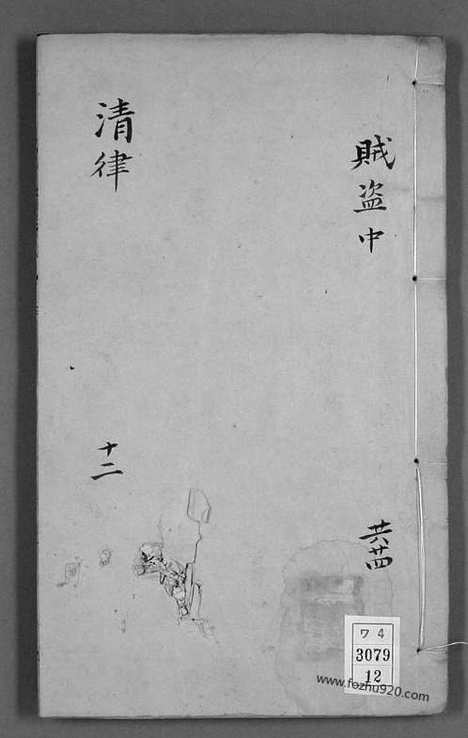 賊盗中
共廿四
清律
十二
ワ 4
3079
12
www.fozhu920.com